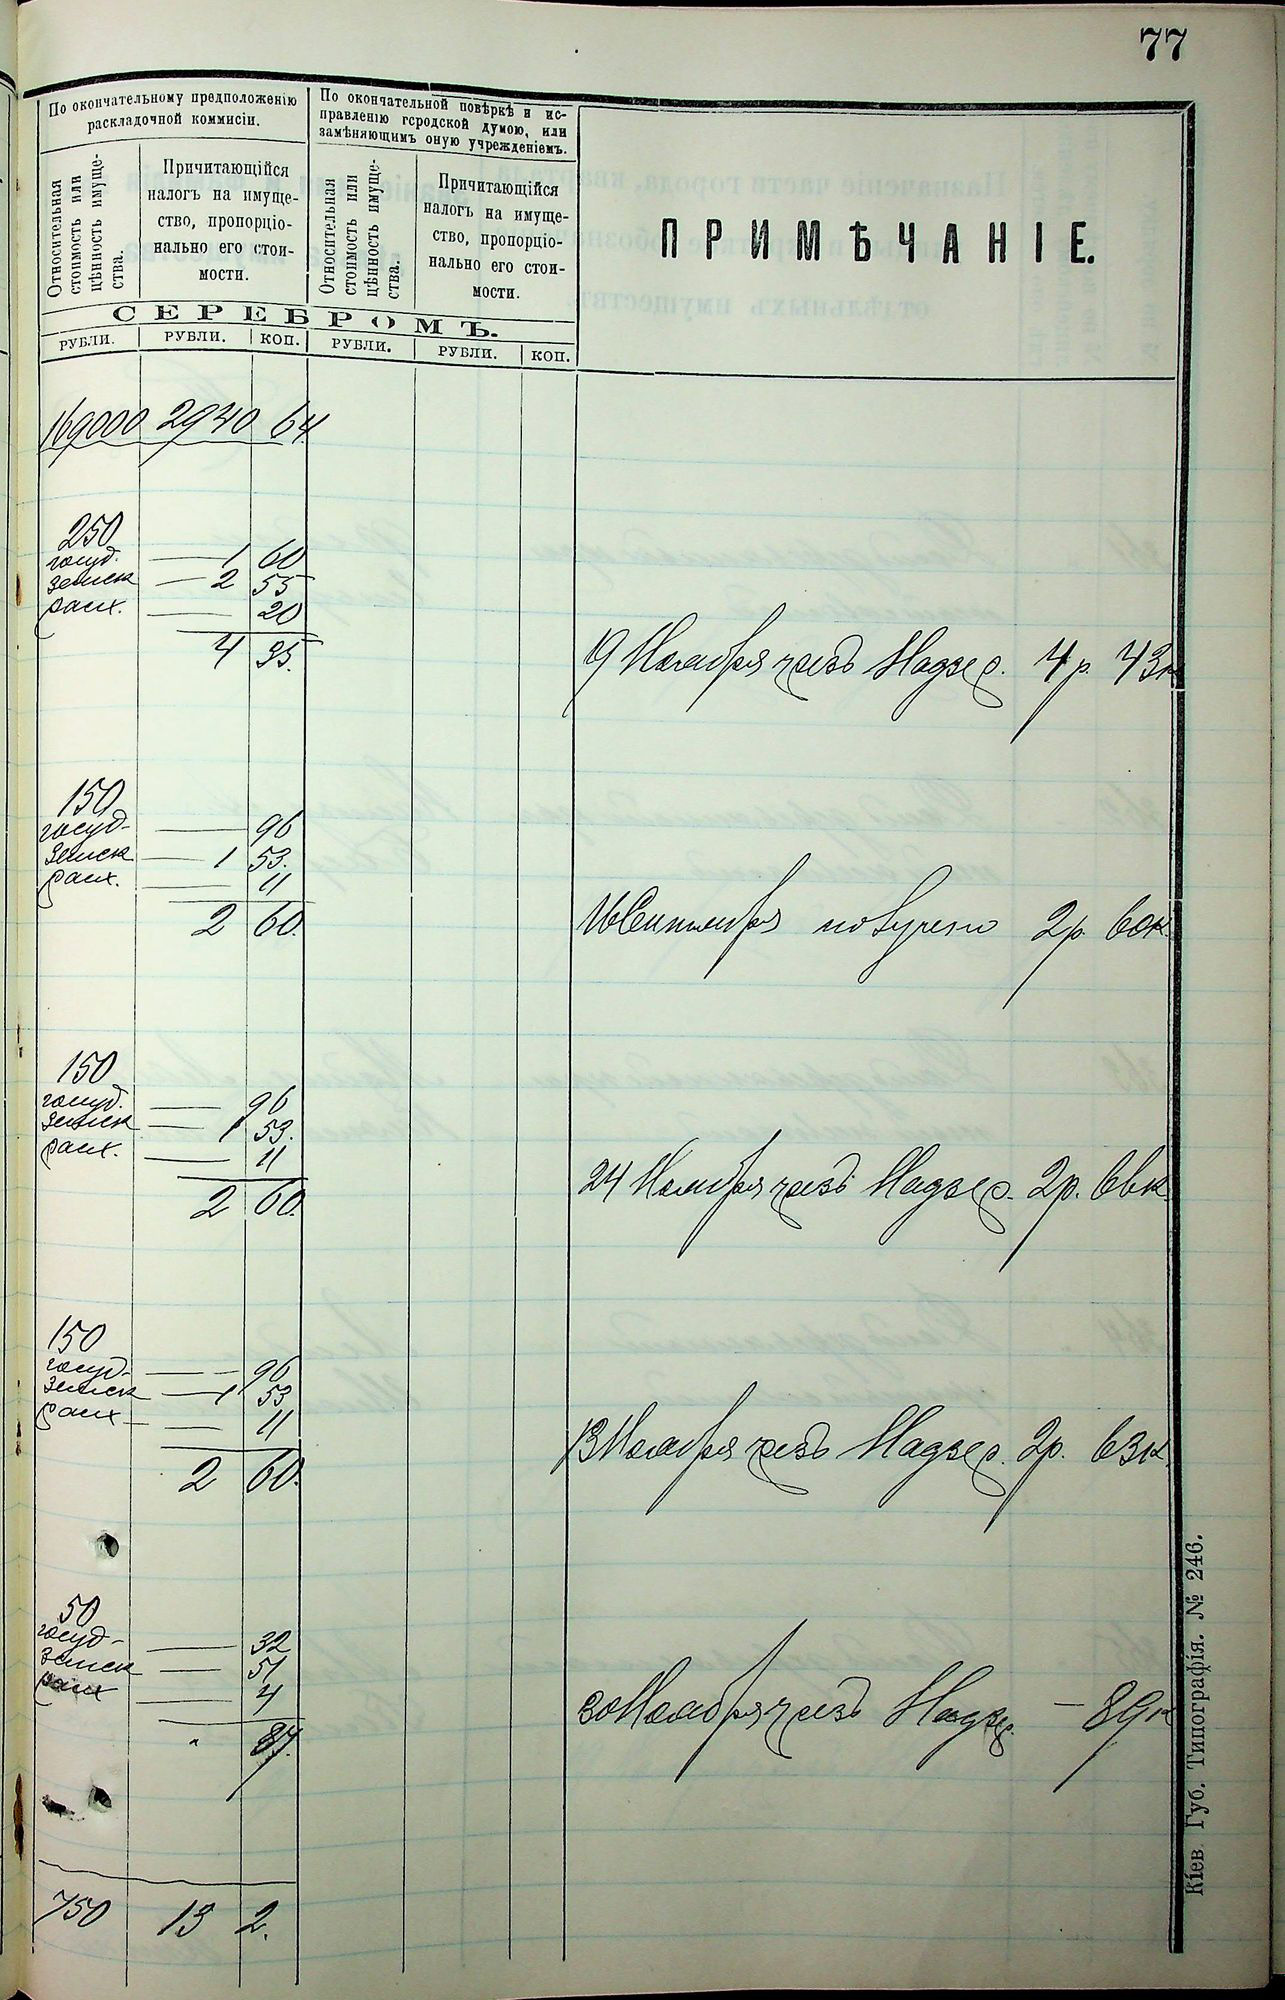 77
По окончательному предположенію
раскладочной коммисіи.
По окончательной повѣркѣ и ис-
правленію городской думою, или
замѣняющимъ оную учрежденіемъ.
Относительная
стоимость или
цѣнность имуще-
ства.
Причитающійся
налогъ на имуще-
ство, пропорціо-
нально его стои-
мости.
Относительная
стоимость или
цѣнность имуще-
ства.
Причитающійся
налогъ на имуще-
ство, пропорціо-
нально его стои-
мости.
ПРИМѢЧАНІЕ.
СЕРЕБРОМЪ.
РУБЛИ. РУБЛИ. КОП. РУБЛИ. РУБЛИ. КОП.
169000 2940 64
250
госуд. — 1 60
земск — 2 55
раск. — 20
4 35.
19 Ноября чрезъ Надзер. 4 р. 43к
150
госуд- — 96
земск — 1 53.
раск. — 11
2 60.
16 Сентября 2р. 60к.
150
госуд. — 96
земск — 1 53.
раск. — 11
2 60.
24 Ноября чрезъ Надзер. 2р. 66к.
150
госуд- — 96
земск — 1 53
раск — 11
2 60.
13 Ноября чрезъ Надзер. 2р. 63к.
50
госуд- — 32
земск — 51
раск — 4
" 87.
30 Ноября чрезъ Надзер. — 89к
750 13 2.
Кіев. Губ. Типографія. № 246.